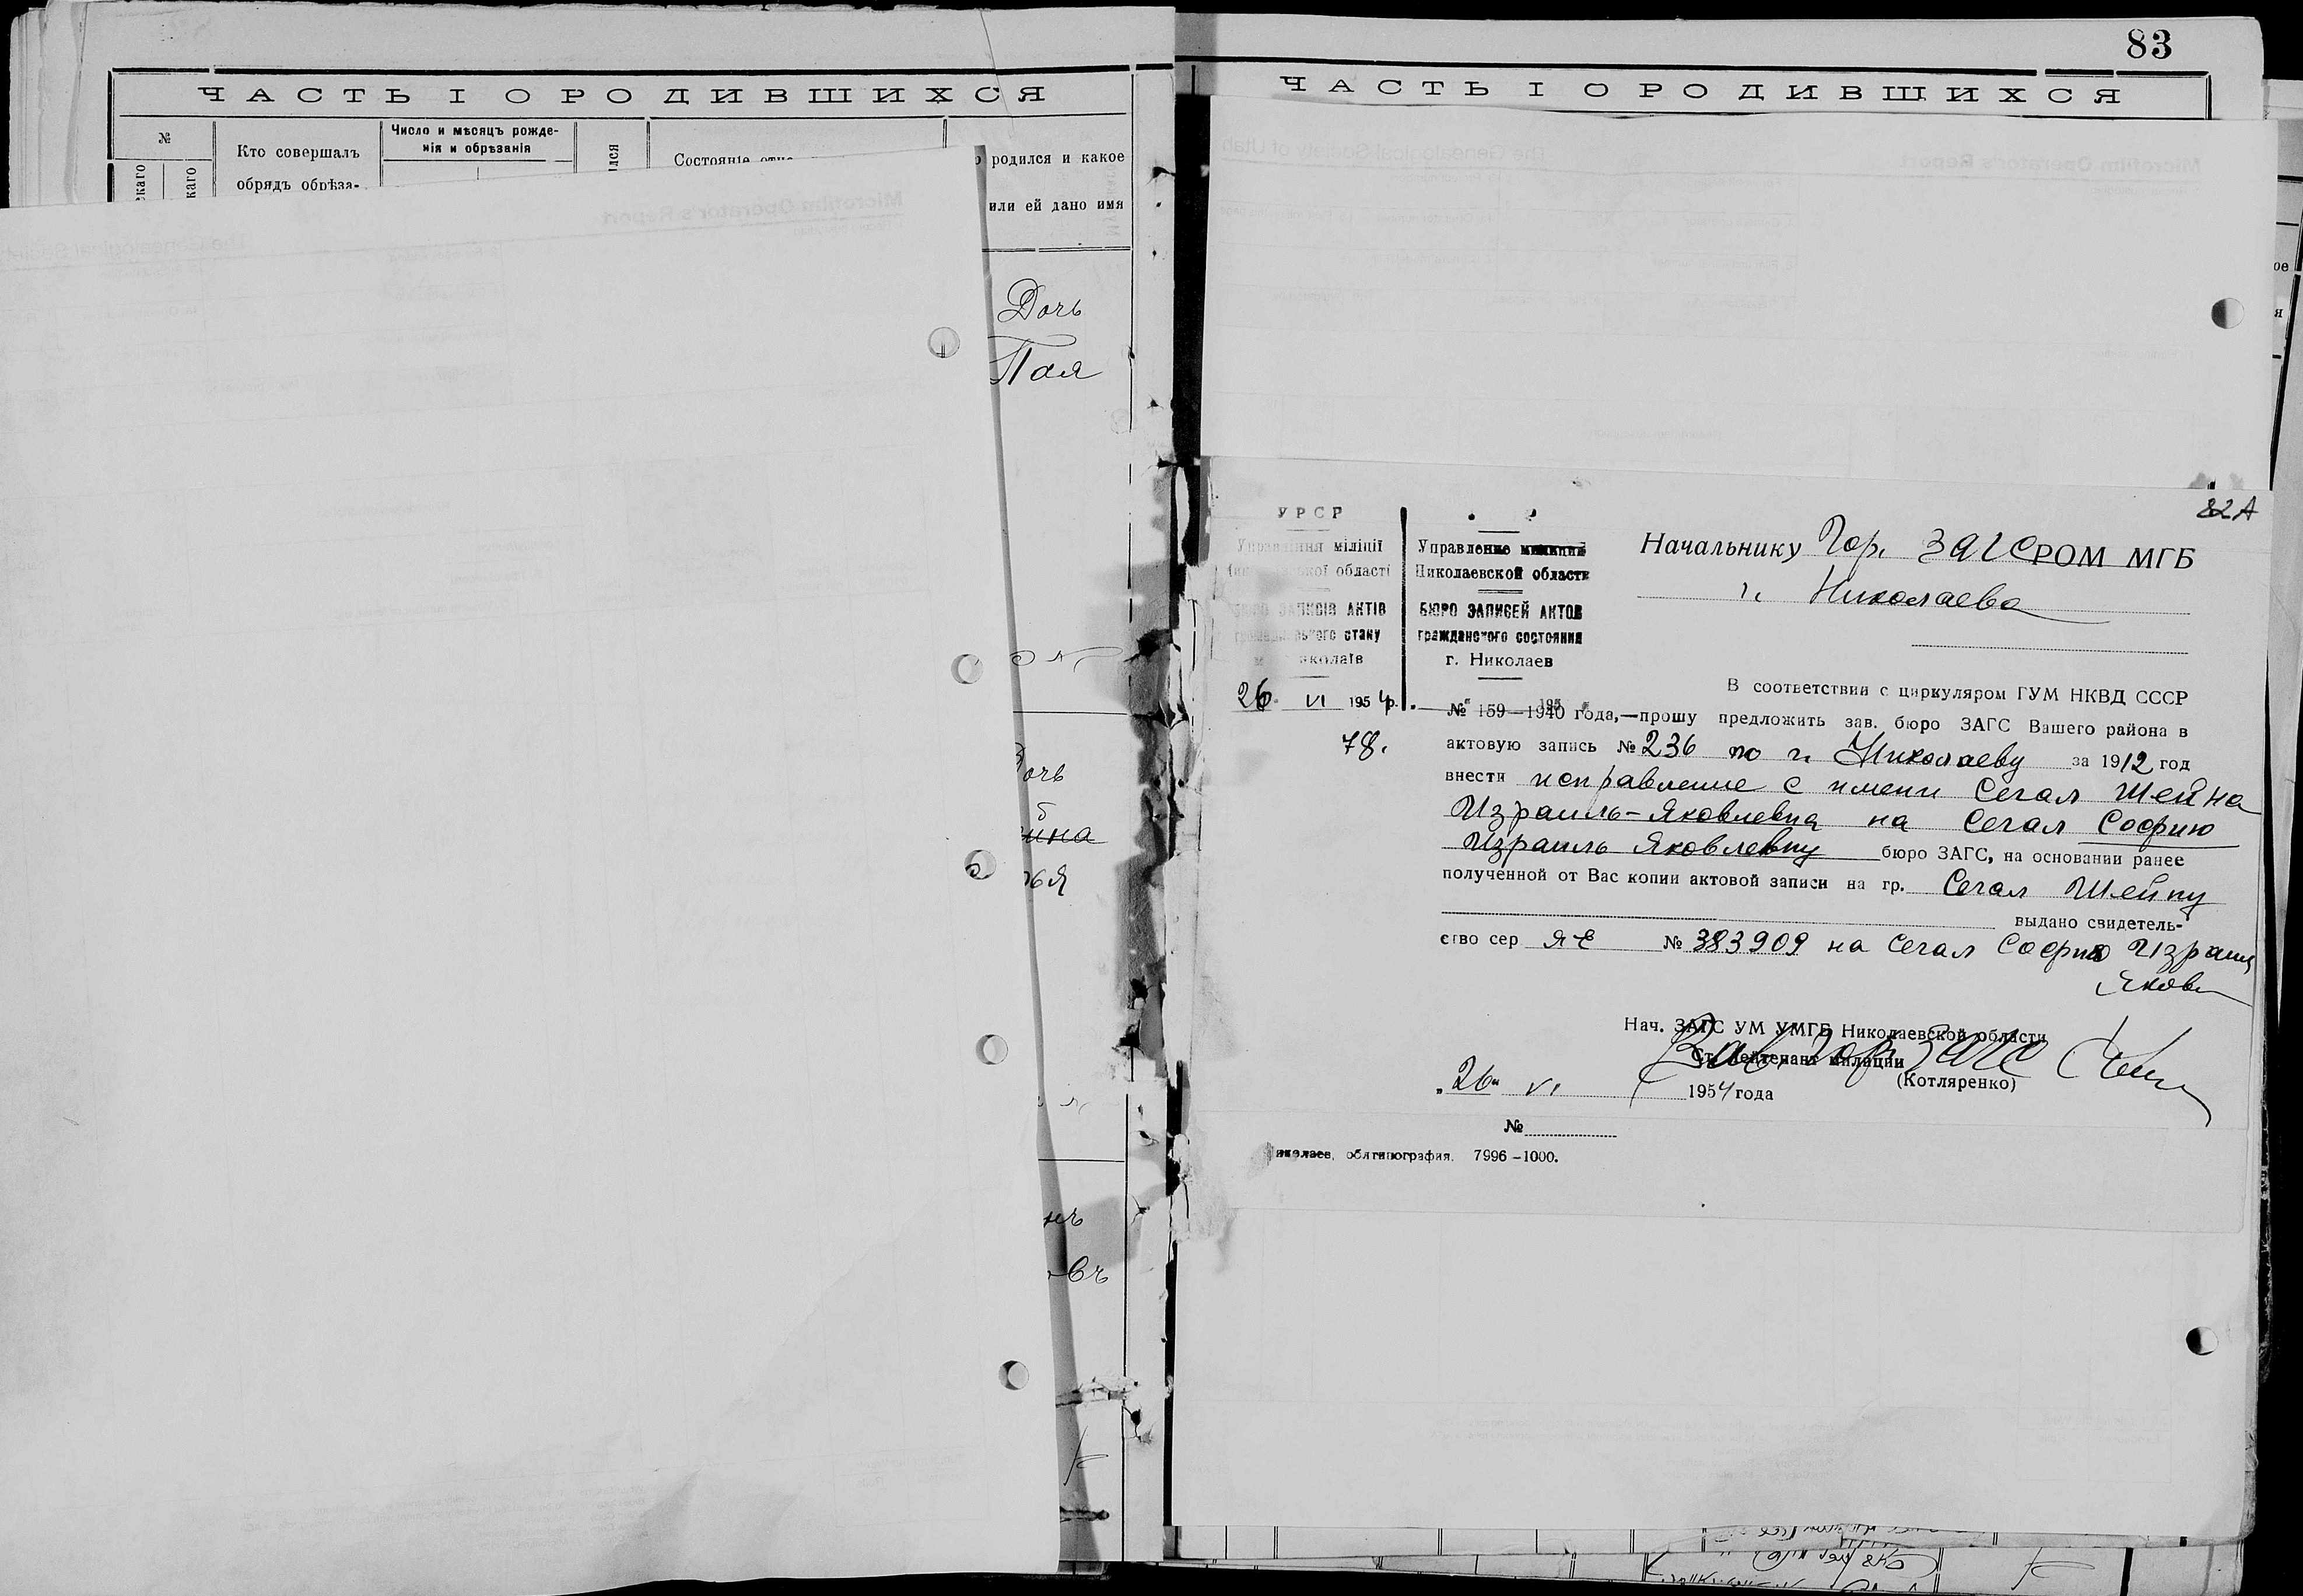 ЧАСТЬ I О РОДИВШИХСЯ
№
Кто совершалъ
обрядъ обрѣза-
Число и мѣсяцъ рожде-
нія и обрѣзанія
Состояніе
родился и какое
или ей дано имя
Дочь
Пая
83
ЧАСТЬ I О РОДИВШИХСЯ
82А
УРСР
Управління міліції
області
ЗАПИСІВ АКТІВ
стану
26 VI 1954 р.
78.
Управление милиции
Николаевской области
БЮРО ЗАПИСЕЙ АКТОВ
гражданского состояния
г. Николаев
Начальнику Гор. ЗАГС РОМ МГБ
г. Николаева
В соответствии с циркуляром ГУМ НКВД СССР
№ 159—1940 года,—прошу предложить зав. бюро ЗАГС Вашего района в
актовую запись № 236 по г. Николаеву за 1912 год
внести исправление с имени Сегал Шейна
Израиль-Яковлевна на Сегал Софию
Израиль Яковлевну бюро ЗАГС, на основании ранее
полученной от Вас копии актовой записи на гр. Сегал Шейну
выдано свидетель-
ство сер ЯЕ № 383909 на Сегал Софию Израиль
Яковл
Нач. ЗАГС УМ УМГБ Николаевской области
Ст. Лейтенант милиции
Зав. Гор ЗАГС
(Котляренко)
„26“ VI 1954 года
№
Николаев, облтипография. 7996–1000.